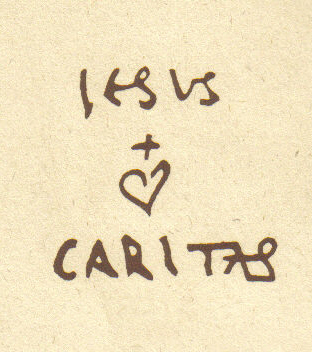 JESUS
CARITAS